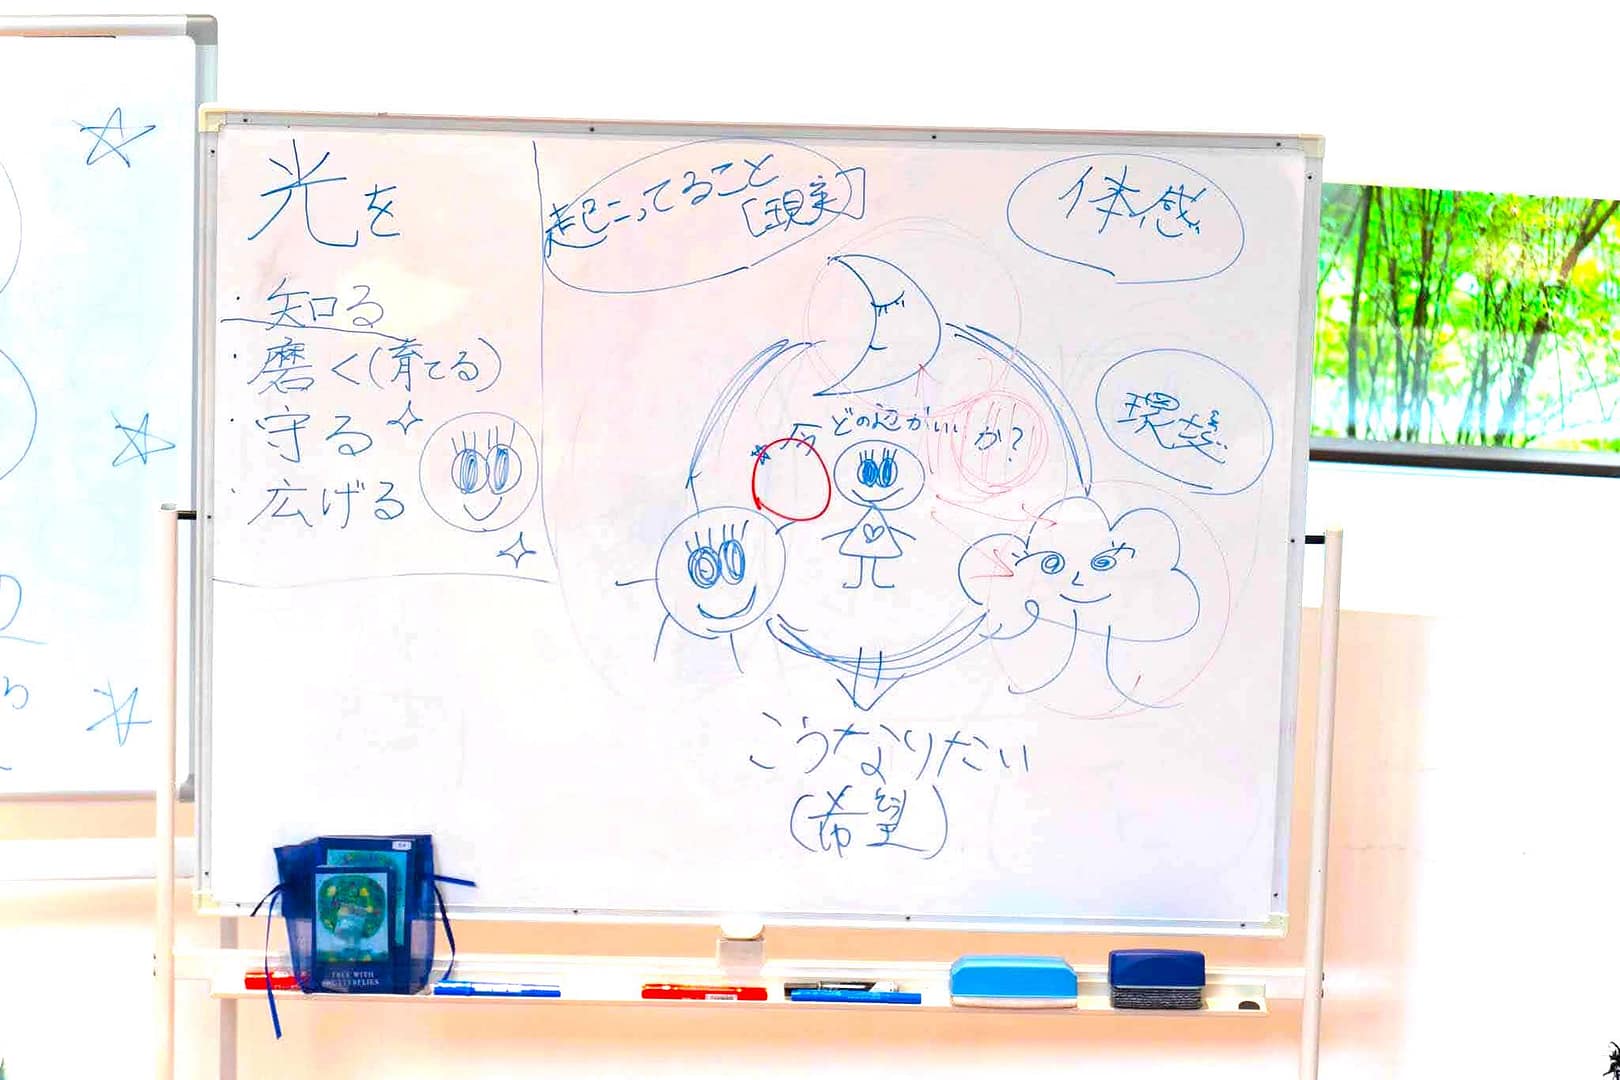 光を
・知る
・磨く(育てる)
・守る
・広げる
起こってること
[現実]
体感
環境
今どの辺がいいか?
こうなりたい
(希望)
TREE WITH
BUTTERFLIES